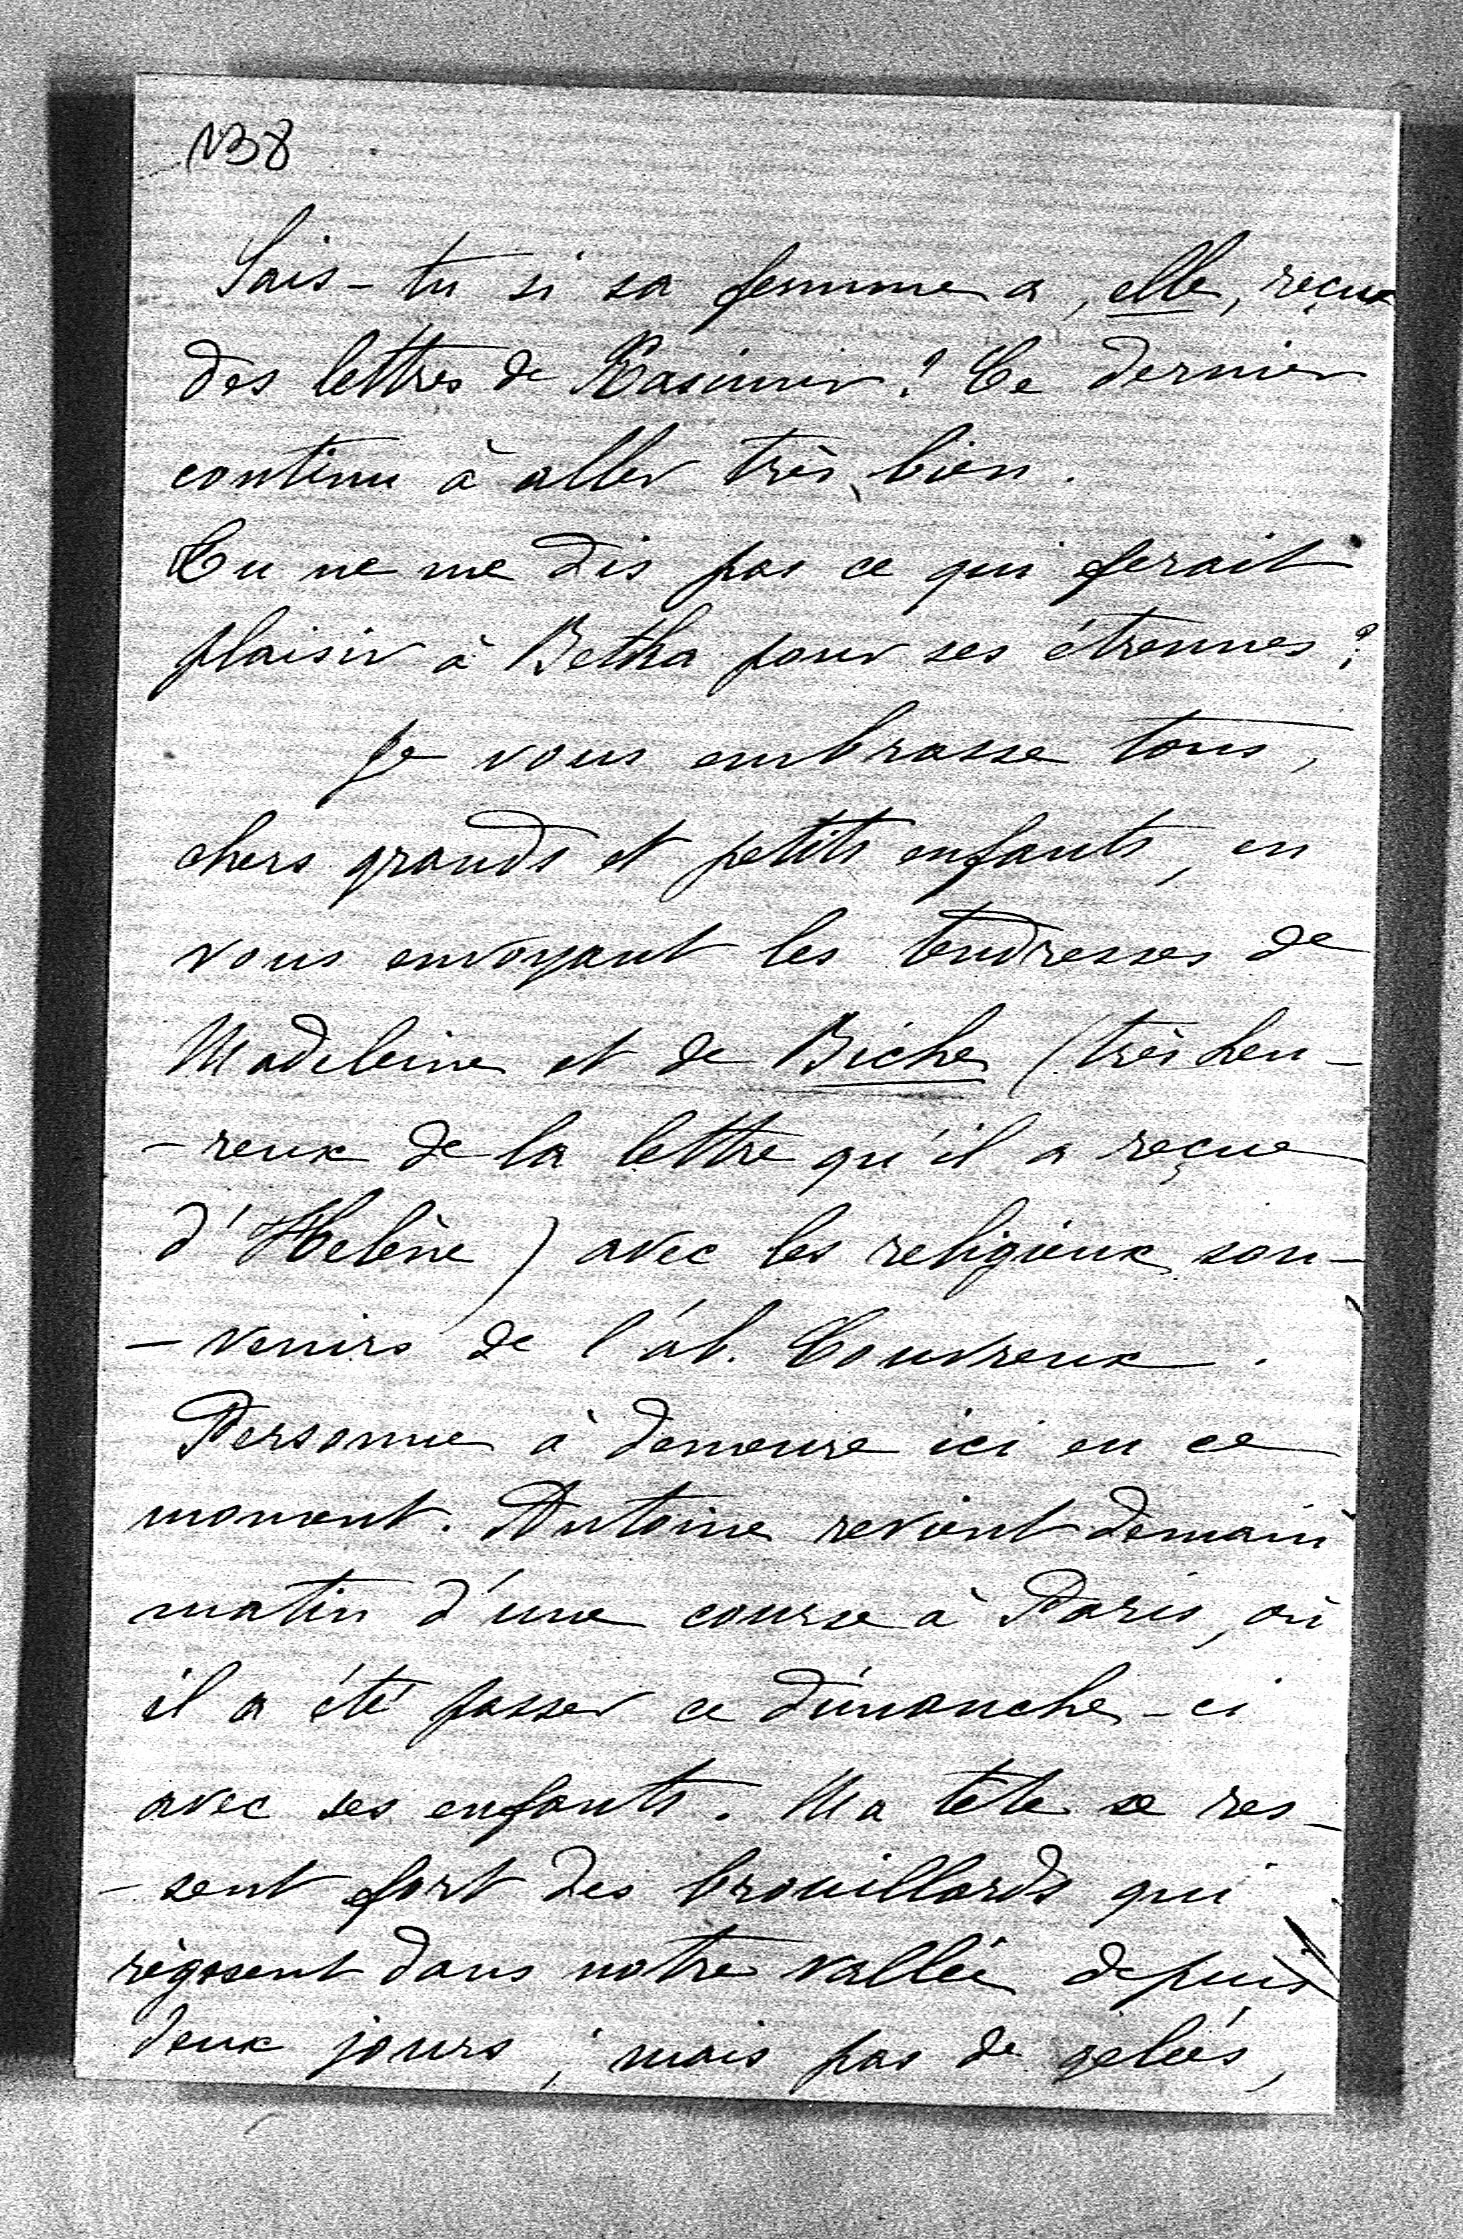 N38
Sais-tu si sa femme a, elle, reçue
des lettres de Kasimir? Ce dernier
continu à aller très bien.
Tu ne me dis pas ce qui ferait
plaisir à Betka pour ses étrennes?
Je vous embrasse tous,
chers grands et petits enfants, en
vous envoyant les tendresses de
Madeleine et de Biche (très heu-
-reux de la lettre qu'il a reçue
d'Helène) avec les religieux sou-
-venirs de l'ab. Couvreux.
Personne à demeure ici en ce
moment. Antoine revient demain
matin d'une course à Paris, où
il a été passer ce dimanche-ci
avec ses enfants. Ma tête se res-
-sent fort des brouillards qui
règnent dans notre vallée depuis
deux jours; mais pas de gelées,